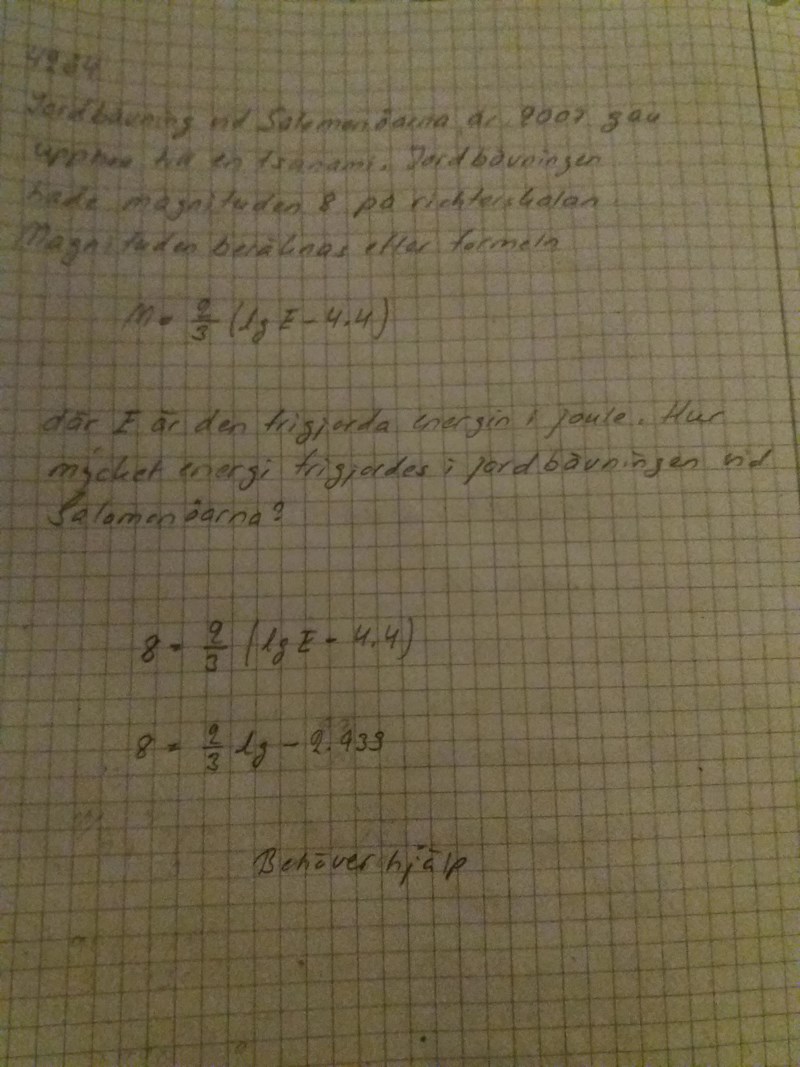 4284
Jordbävning vid Salomonöarna år 2007 gav
upphov till en tsunami. Jordbävningen
hade magnituden 8 på richterskalan
Magnituden beräknas efter formeln
M = 2/3 (lg E - 4.4)
där E är den frigjorda energin i joule. Hur
mycket energi frigjordes i jordbävningen vid
Salomonöarna?
8 = 2/3 (lg E - 4.4)
8 = 2/3 lg - 2.933
Behöver hjälp